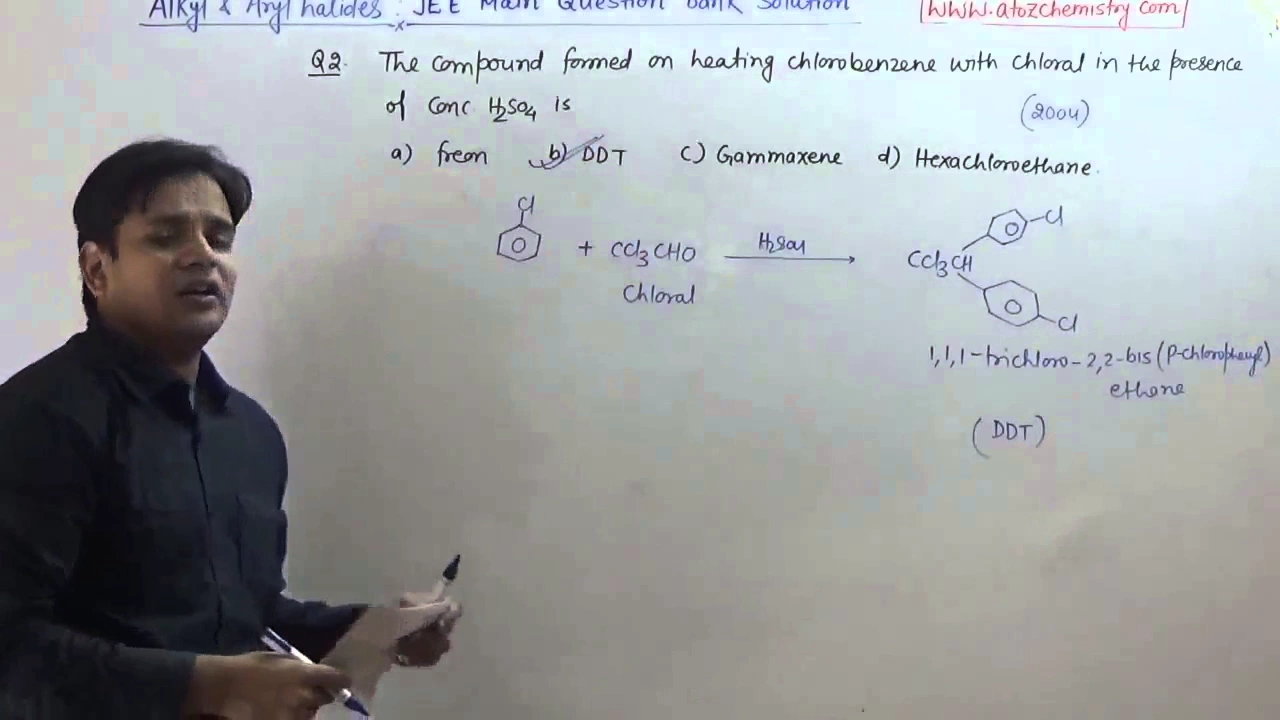 Alkyl & Aryl halides: JEE Main Question bank solution
www.atozchemistry.com
Q2. The compound formed on heating chlorobenzene with chloral in the presence
of Conc H2SO4 is
(2004)
a) freon b) DDT c) Gammaxene d) Hexachloroethane.
Cl
+ CCl3CHO
H2SO4
Chloral
Cl
CCl3CH
Cl
1,1,1-trichloro-2,2-bis(P-chlorophenyl)
ethane
(DDT)